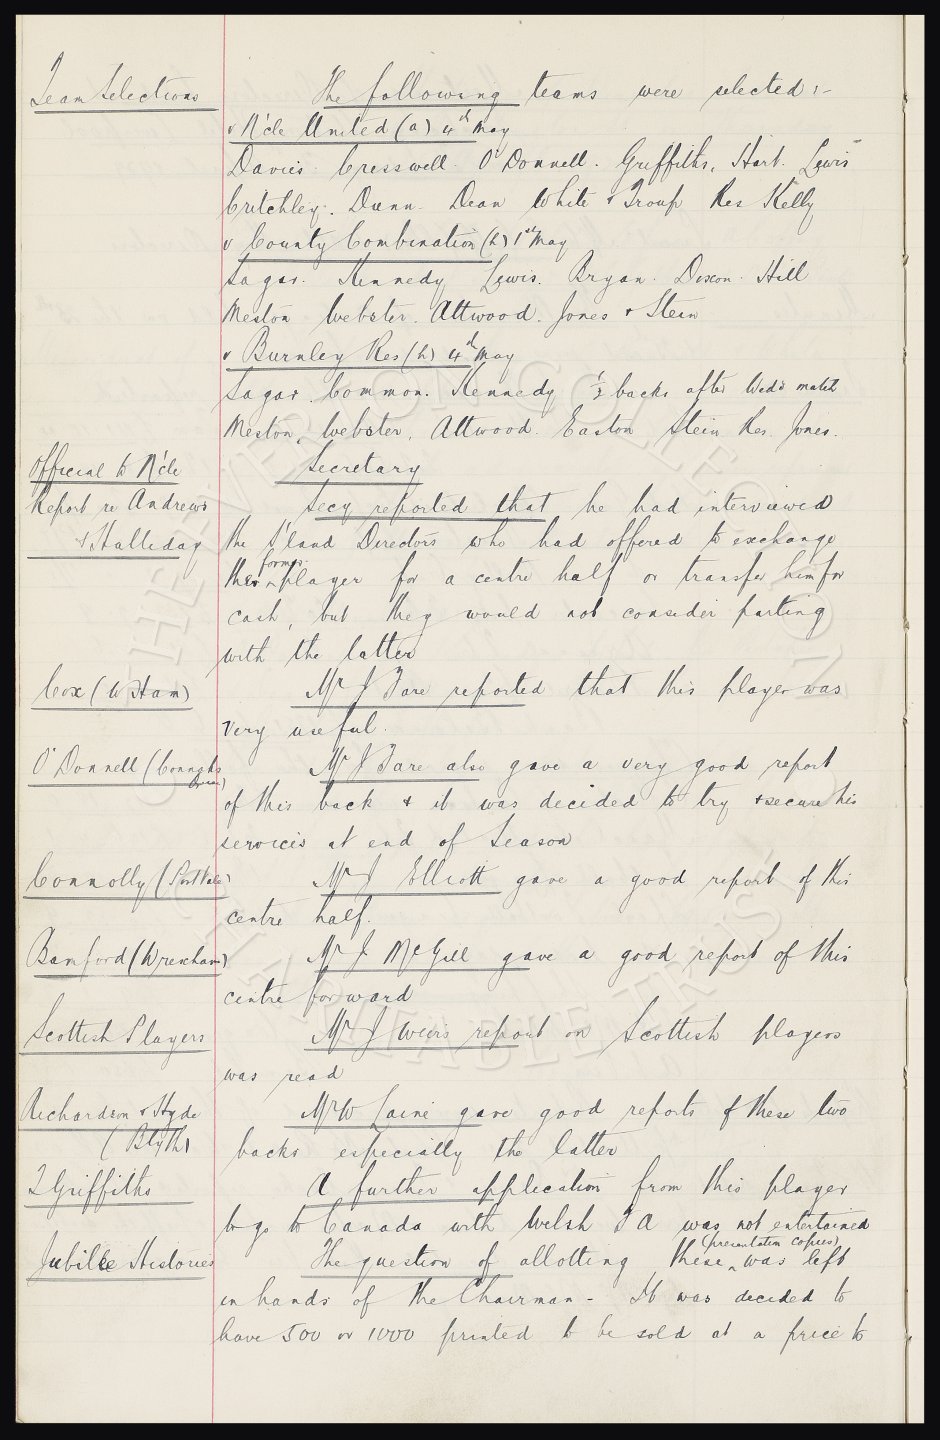 Team Selections
The following teams were selected:-
v N'cle United (a) 4th May
Davies. Cresswell. O'Donnell. Griffiths, Hart. Lewis
Critchley. Dunn. Dean White & Troup Res Kelly
v County Combination (h) 1st May
Sagar. Kennedy Lewis. Bryan. Dixon. Hill
Meston Webster. Attwood. Jones & Stein
v Burnley Res (h) 4th May
Sagar. Common. Kennedy ½ backs after Wed's match
Meston, Webster, Attwood. Easton Stein Res. Jones.
Official to N'cle
Secretary
Report re Andrews
& Halliday
Secy reported that he had interviewed
the S'land Directors who had offered to exchange
their former player for a centre half or transfer him for
cash, but they would not consider parting
with the latter
Cox (W Ham)
Mr J Fare reported that this player was
very useful.
O'Donnell (Connahs
Mr J Fare also gave a very good report
of this back & it was decided to try & secure his
services at end of Season
Connolly (Port Vale)
Mr J Elliott gave a good report of this
centre half.
Bamford (Wrexham)
Mr J McGill gave a good report of this
centre forward
Scottish Players
Mr J Weirs report on Scottish players
was read
Richardson & Hyde
(Blyth)
Mr W Caine gave good reports of these two
backs especially the latter
T Griffiths
A further application from this player
to go to Canada with Welsh F A was not entertained
Jubilee Histories
The question of allotting these (presentation copies) was left
in hands of the Chairman - It was decided to
have 500 or 1000 printed to be sold at a price to
THE EVERTON COLLECTION
CHARITABLE TRUST